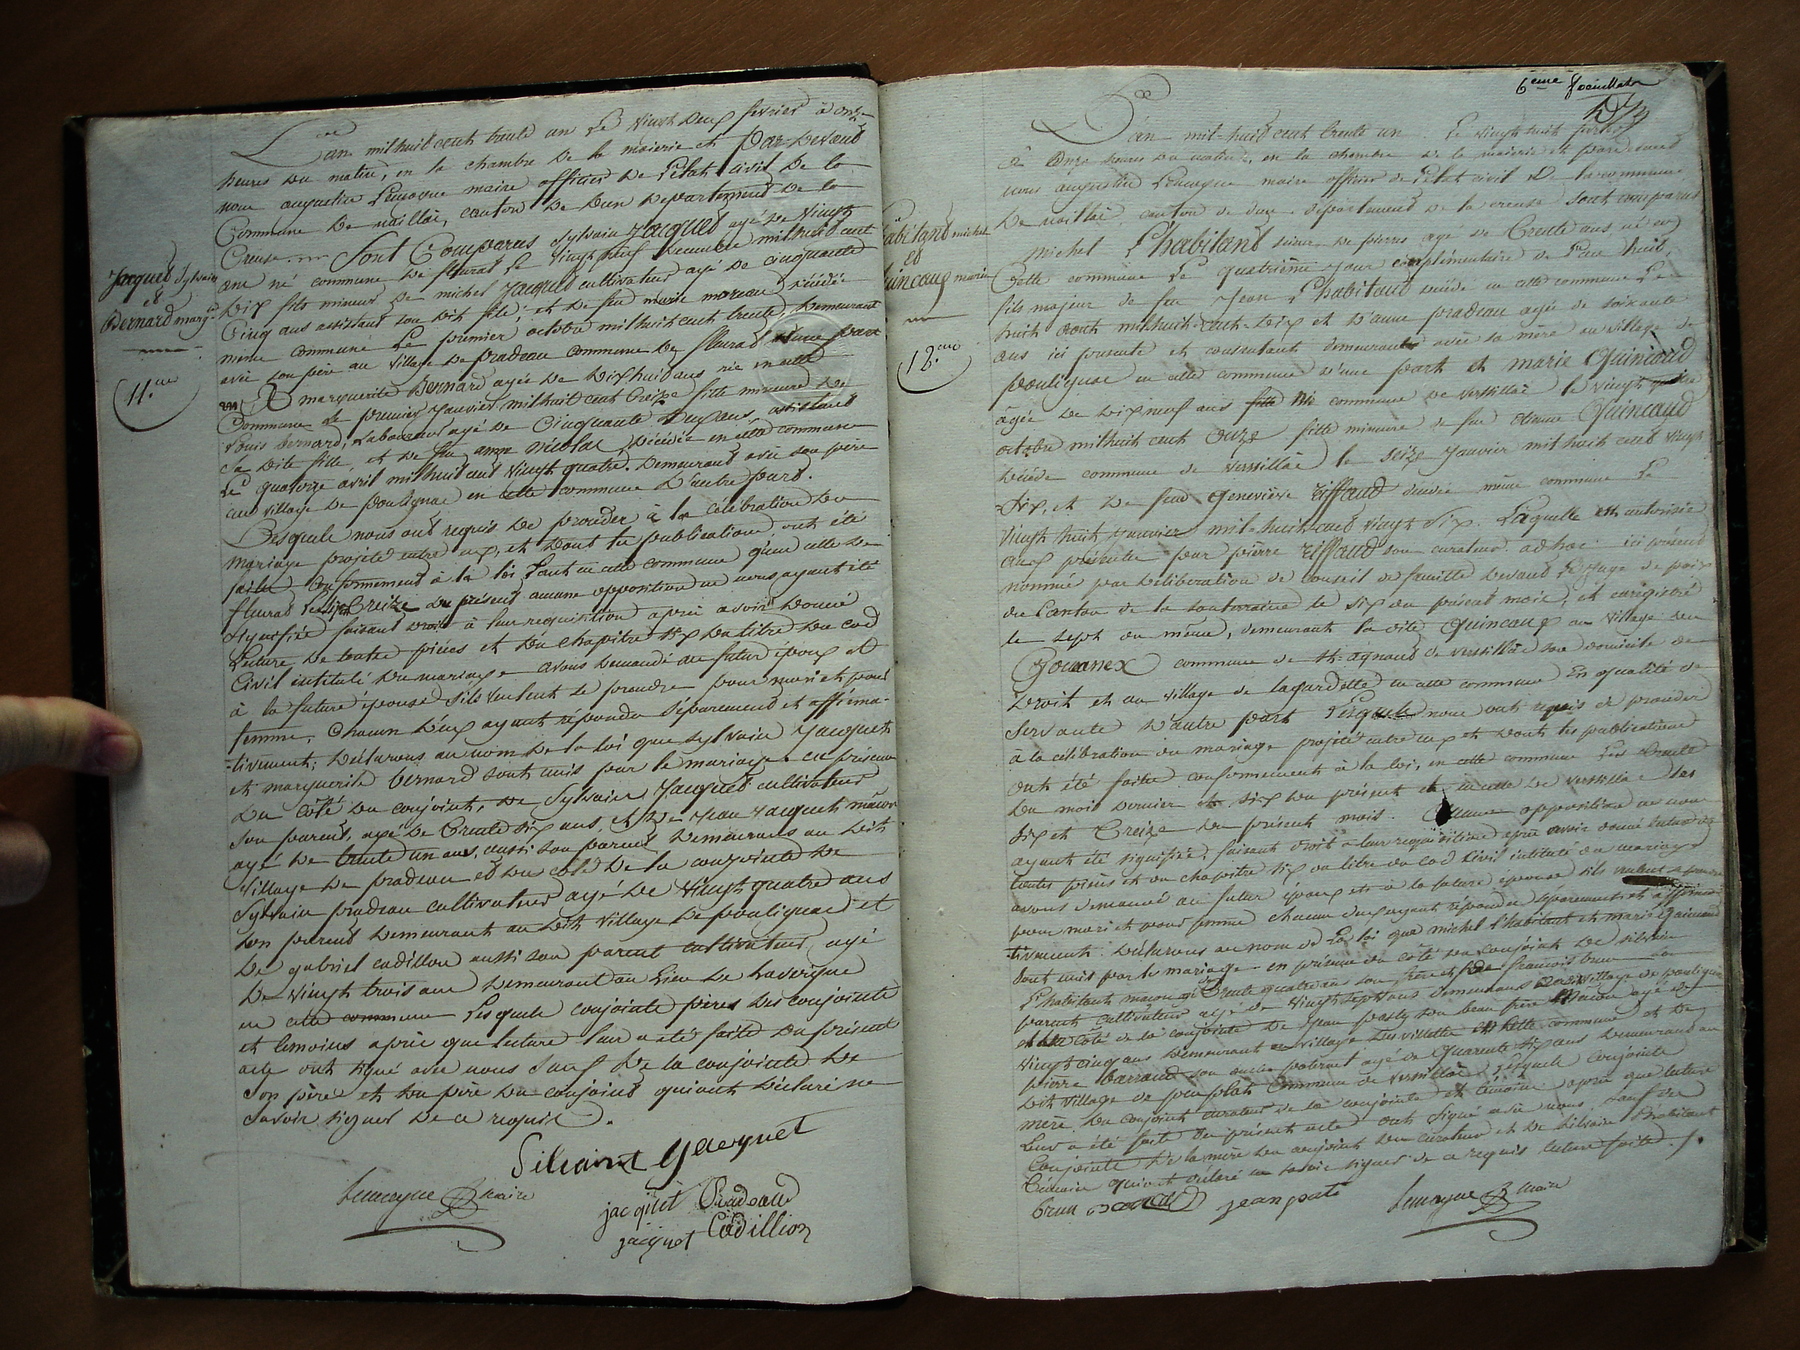 L'an mil huit cent trente un Le vingt deux fevrier à onze
heures du matin, en la chambre de la mairie et Par devant
nous augustin Lemoyne maire officier de l'état civil de la
Commune de naillac, canton de Dun departement de la
Creuse. Sont Comparus Sylvain Jacquet agé de vingt
ans né commune de fleurat Le vingt neuf decembre mil huit cent
Dix fils mineur de michel Jacquet cultivateur agé de cinquante
Cinq ans assistant son dit fils; et de feu marie moreau décédée
même commune Le premier octobre mil huit cent trente, Demeurant
avec son père au village de pradeau commune de fleurat d'une part
Et marguerite Bernard agée de Dix huit ans née en cette
Commune le premier Janvier mil huit cent treize fille mineure de
Louis Bernard, Laboureur agé de Cinquante ans, assistant
Sa dite fille, et de feu anne nicolas Décédée en cette commune
Le quatorze avril mil huit cent vingt quatre. Demeurant avec son père
au village de poulignac en cette commune d'autre part.
Lesquels nous ont requis de proceder à la célébration du
mariage projeté entre eux, et dont les publications ont été
faites conformement à la loi tant en cette commune qu'en celle de
fleurat les six et treize du présent aucune opposition ne nous ayant été
Signifiée faisant droit à leur requisition après avoir donné
Lecture de toutes pièces et du chapitre six du titre du cod
Civil intitulé du mariage avons demandé au futur époux et
à la future épouse s'ils veulent se prendre pour mari et pour
femme, chacun d'eux ayant répondu séparement et affirma-
-tivement; Déclarons au nom de la loi que sylvain Jacquet
et marguerite Bernard sont unis par le mariage en présence
du côté du conjoint, de Sylvain Jacquet cultivateur
son parent, agé de trente six ans, et de Jean Jacquet maçon
agé de trente un ans, aussi son parent Demeurans au dit
village de pradeau et du côté de la conjointe de
Sylvain pradeau cultivateur agé de vingt quatre ans
son parent demeurant au dit village de poulignac et
De gabriel cadillon aussi son parent cultivateur, agé
De vingt trois ans demeurant au Lieu de Lavergne
en cette commune Lesquels conjoints pères des conjoints
et temoins après que lecture leur a été faite du présent
acte ont signé avec nous Sauf de la conjointe de
Son père et du père du conjoint qui ont déclaré ne
savoir signer de ce requis.
Silvaint Jacquet
Lemoyne maire
jacquet Pradeaud
jacquet Cadillion
Jacquet Sylvain
et
Bernard marg.te
11.eme
6eme feuillet
L'an mil huit cent trente un Le vingt huit fevrier
à onze heures du matin, en la chambre de la mairie et pardevant
nous augustin Lemoyne maire officier de l'état civil de la commune
De naillac canton de dun departement de la creuse Sont comparus
michel L'habitand agé de trente ans né en
Cette commune Le quatrième jour complémentaire de l'an huit,
fils majeur de feu Jean L'habitand décédé en cette commune Le
huit aout mil huit cent dix et d'anne pradeau agée de soixante
ans ici présente et consentant demeurant avec sa mère au village de
poulignac en cette commune d'une part et marie Quincaud
âgée de dix neuf ans née commune de versillac le vingt quatre
octobre mil huit cent onze fille mineure de feu Quincaud
Décédé commune de versillac le seize janvier mil huit cent vingt
Six, et de feue Geneviève Riffaud décédée même commune Le
vingt huit janvier mil huit cent vingt Six. Laquelle est autorisée
aux présentes par pierre Riffaud son curateur adhoc ici présent
nommé par Délibération de Conseil de famille devant le Juge de paix
du Canton de la Souterraine le six du présent mois, et enrigistré
le sept du même, demeurant la dite Quincaud au village de
Gouanex commune de St agnant de versillac son domicile de
Droit et au village de Lagardette en cette commune En qualité de
Servante d'autre part Lesquels nous ont requis de proceder
à la célébration du mariage projeté entre eux et dont les publications
ont été faites conformement à la loi, en cette commune Les trente
Du mois dernier et six du présent et en celle de versillac les
Six et treize du présent mois. Aucune opposition ne nous
ayant été signifiée, faisant droit à leur requisition après avoir donné lecture de
toutes pièces et du chapitre six du titre du cod Civil intitulé du mariage
avons demandé au futur époux et à la future epouse s'ils veulent se prendre
pour mari et pour femme chacun d'eux ayant répondu séparement et affirma-
-tivement: Déclarons au nom de la loi que michel L'habitant et marie Quincaud
Sont unis par le mariage en présence du côté du conjoint de silvain
L'habitant maçon agé trente quatre ans son frère et de francois brun son
parent cultivateur agé de vingt sept ans demeurans au dit village de poulignac
et du côté de la conjointe de Jean pasty son beau frère maçon agé de
vingt cinq ans demeurant au village des villettes en cette commune et de
pierre Barraud son oncle paternel agé de quarente six ans demeurant au
Dit village de commune de versillac Lesquels Conjoints
mère du conjoint curateur de la conjointe et témoins après que lecture
Leur a été faite du présent acte ont signé avec nous sauf de
Conjointe De la mère du conjoint du curateur et de Silvain L'habitant
Témoins qui ont déclaré ne savoir signer de ce requis lecture faite.
brun jean pate Lemoyne maire
L'habitand michel
et
Quincaud marie
12.eme